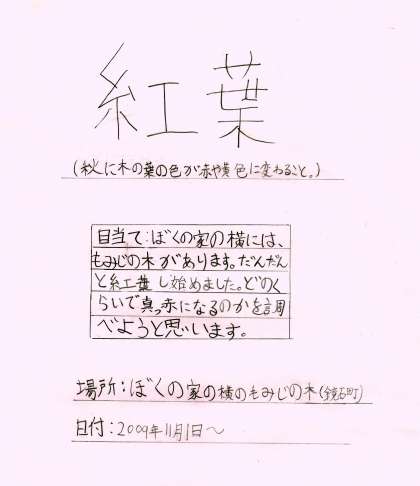 紅葉
(秋に木の葉の色が赤や黄色に変わること。)
目当て:ぼくの家の横には、
もみじの木があります。だんだん
と紅葉し始めました。どのく
らいで真っ赤になるのかを調
べようと思います。
場所:ぼくの家の横のもみじの木(鏡石町)
日付:2009年11月1日〜